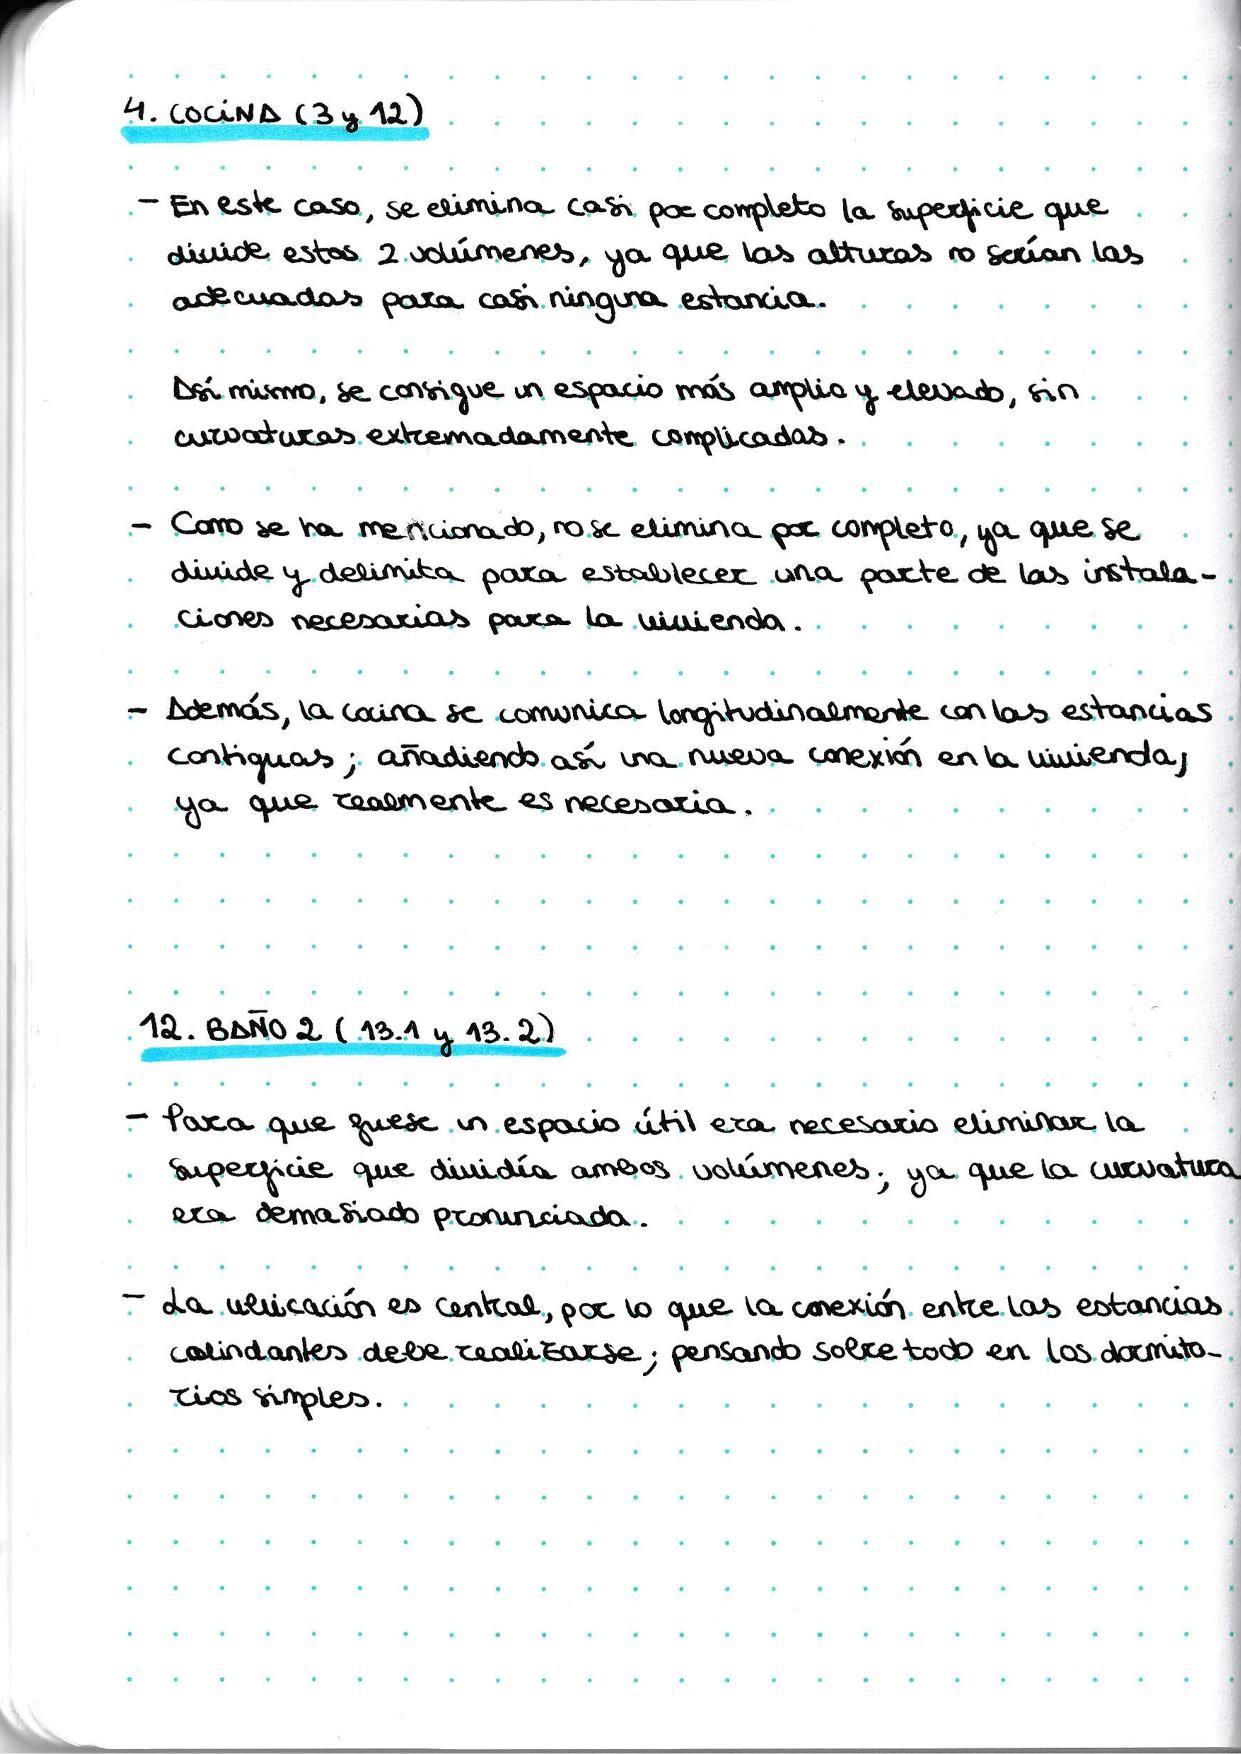 4. COCINA (3 y 12)
- En este caso, se elimina casi por completo la superficie que
divide estos 2 volúmenes, ya que las alturas no serían las
adecuadas para casi ninguna estancia.
Así mismo, se consigue un espacio más amplio y elevado, sin
curvaturas extremadamente complicadas.
- Como se ha mencionado, no se elimina por completo, ya que se
divide y delimita para establecer una parte de las instala-
ciones necesarias para la vivienda.
- Además, la cocina se comunica longitudinalmente con las estancias
contiguas; añadiendo así una nueva conexión en la vivienda,
ya que realmente es necesaria.
12. BAÑO 2 (13.1 y 13.2)
- Para que fuese un espacio útil era necesario eliminar la
superficie que dividía ambos volúmenes; ya que la curvatura
era demasiado pronunciada.
- La ubicación es central, por lo que la conexión entre las estancias
colindantes debe realizarse; pensando sobre todo en los dormito-
rios simples.